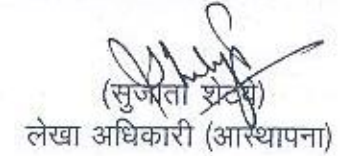 (सुजाता शेट्ये)
लेखा अधिकारी (आस्थापना)